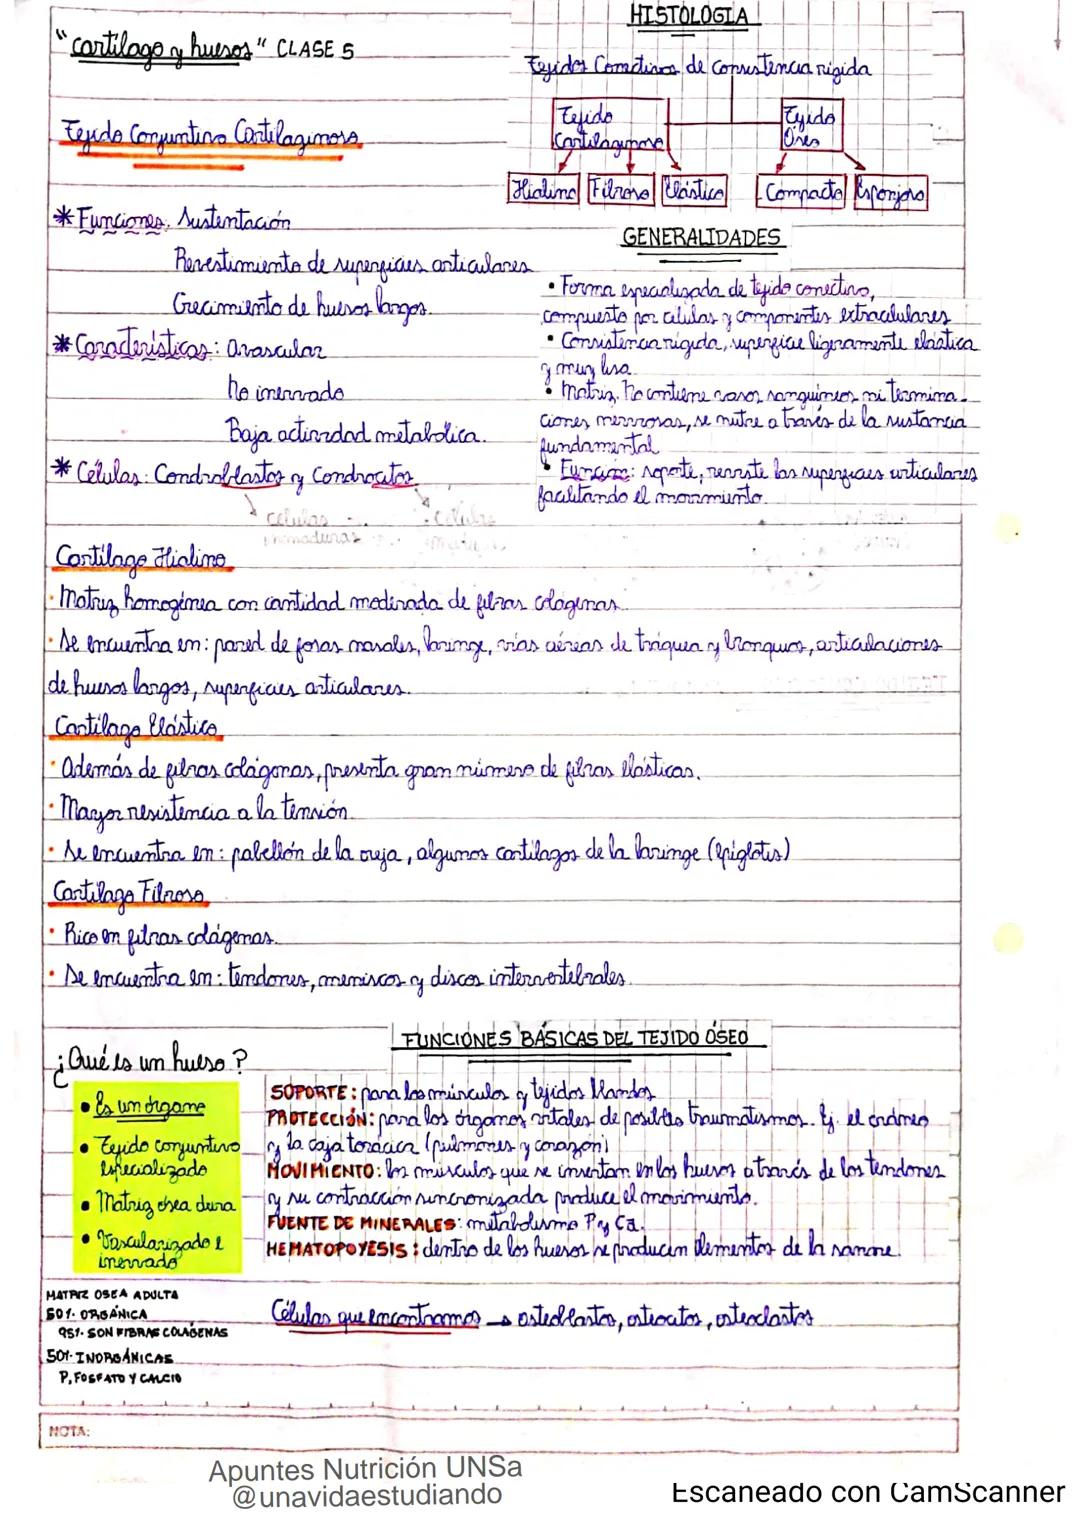 HISTOLOGIA
"Cartilago y huesos" CLASE 5
Tejidos Conectivos de consistencia rigida
Tejido Cartilaginoso
Tejido Oseo
Hialino
Fibroso
Elástico
Compacto
Esponjoso
Tejido Conjuntivo Cartilaginoso
* Funciones: Sustentación
Revestimiento de superficies articulares
Crecimiento de huesos largos.
* Características: avascular
No inervado
Baja actividad metabolica.
* Células: Condroblastos y Condrocitos
celulas inmaduras
celulas
GENERALIDADES
• Forma especializada de tejido conectivo,
compuesto por celulas y componentes extracelulares
• Consistencia rigida, superficie ligeramente elastica
y muy lisa
• Matriz: No contiene vasos sanguineos ni termina-
ciones nerviosas, se nutre a través de la sustancia
fundamental
• Función: soporte, reviste las superficies articulares
facilitando el movimiento.
Cartilago Hialino
• Matriz homogénea con cantidad moderada de fibras colágenas.
• Se encuentra en: pared de fosas nasales, laringe, vias aéreas de tráquea y bronquios, articulaciones
de huesos largos, superficies articulares.
Cartilago Elástico
• Además de fibras colágenas, presenta gran número de fibras elásticas.
• Mayor resistencia a la tensión.
• Se encuentra en: pabellón de la oreja, algunos cartilagos de la laringe (epiglotis)
Cartilago Fibroso
• Rico en fibras colágenas.
• Se encuentra en: tendones, meniscos y discos intervertebrales.
FUNCIONES BÁSICAS DEL TEJIDO ÓSEO
¿Qué es un hueso?
• Es un órgano
• Tejido conjuntivo
especializado
• Matriz ósea dura
• Vascularizado e
inervado
SOPORTE: para los músculos y tejidos blandos
PROTECCIÓN: para los órganos vitales de posibles traumatismos. Ej. el cráneo
y la caja toracica (pulmones y corazon)
MOVIMIENTO: los músculos que se insertan en los huesos a través de los tendones
y su contracción sincronizada produce el movimiento.
FUENTE DE MINERALES: metabolismo P y Ca.
HEMATOPOYESIS: dentro de los huesos se producen elementos de la sangre.
MATRIZ OSEA ADULTA
50%. ORGÁNICA
95%. SON FIBRAS COLÁGENAS
50%. INORGÁNICAS
P, FOSFATO Y CALCIO
Células que encontramos → osteoblastos, osteocitos, osteoclastos
NOTA:
Apuntes Nutrición UNSa
@unavidaestudiando
Escaneado con CamScanner